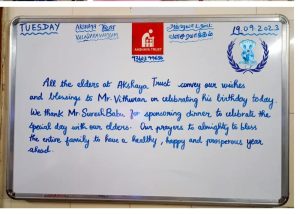 TUESDAY
AKSHAYA TRUST
AKSHAYA TRUST
19.09.2023
All the elders at Akshaya Trust convey our wishes
and blessings to Mr. Vithuran on celebrating his birthday today.
We thank Mr Suresh Babu for sponsoring dinner to celebrate the
special day with our elders. Our prayers to almighty to bless
the entire family to have a healthy, happy and prosperous year
ahead.